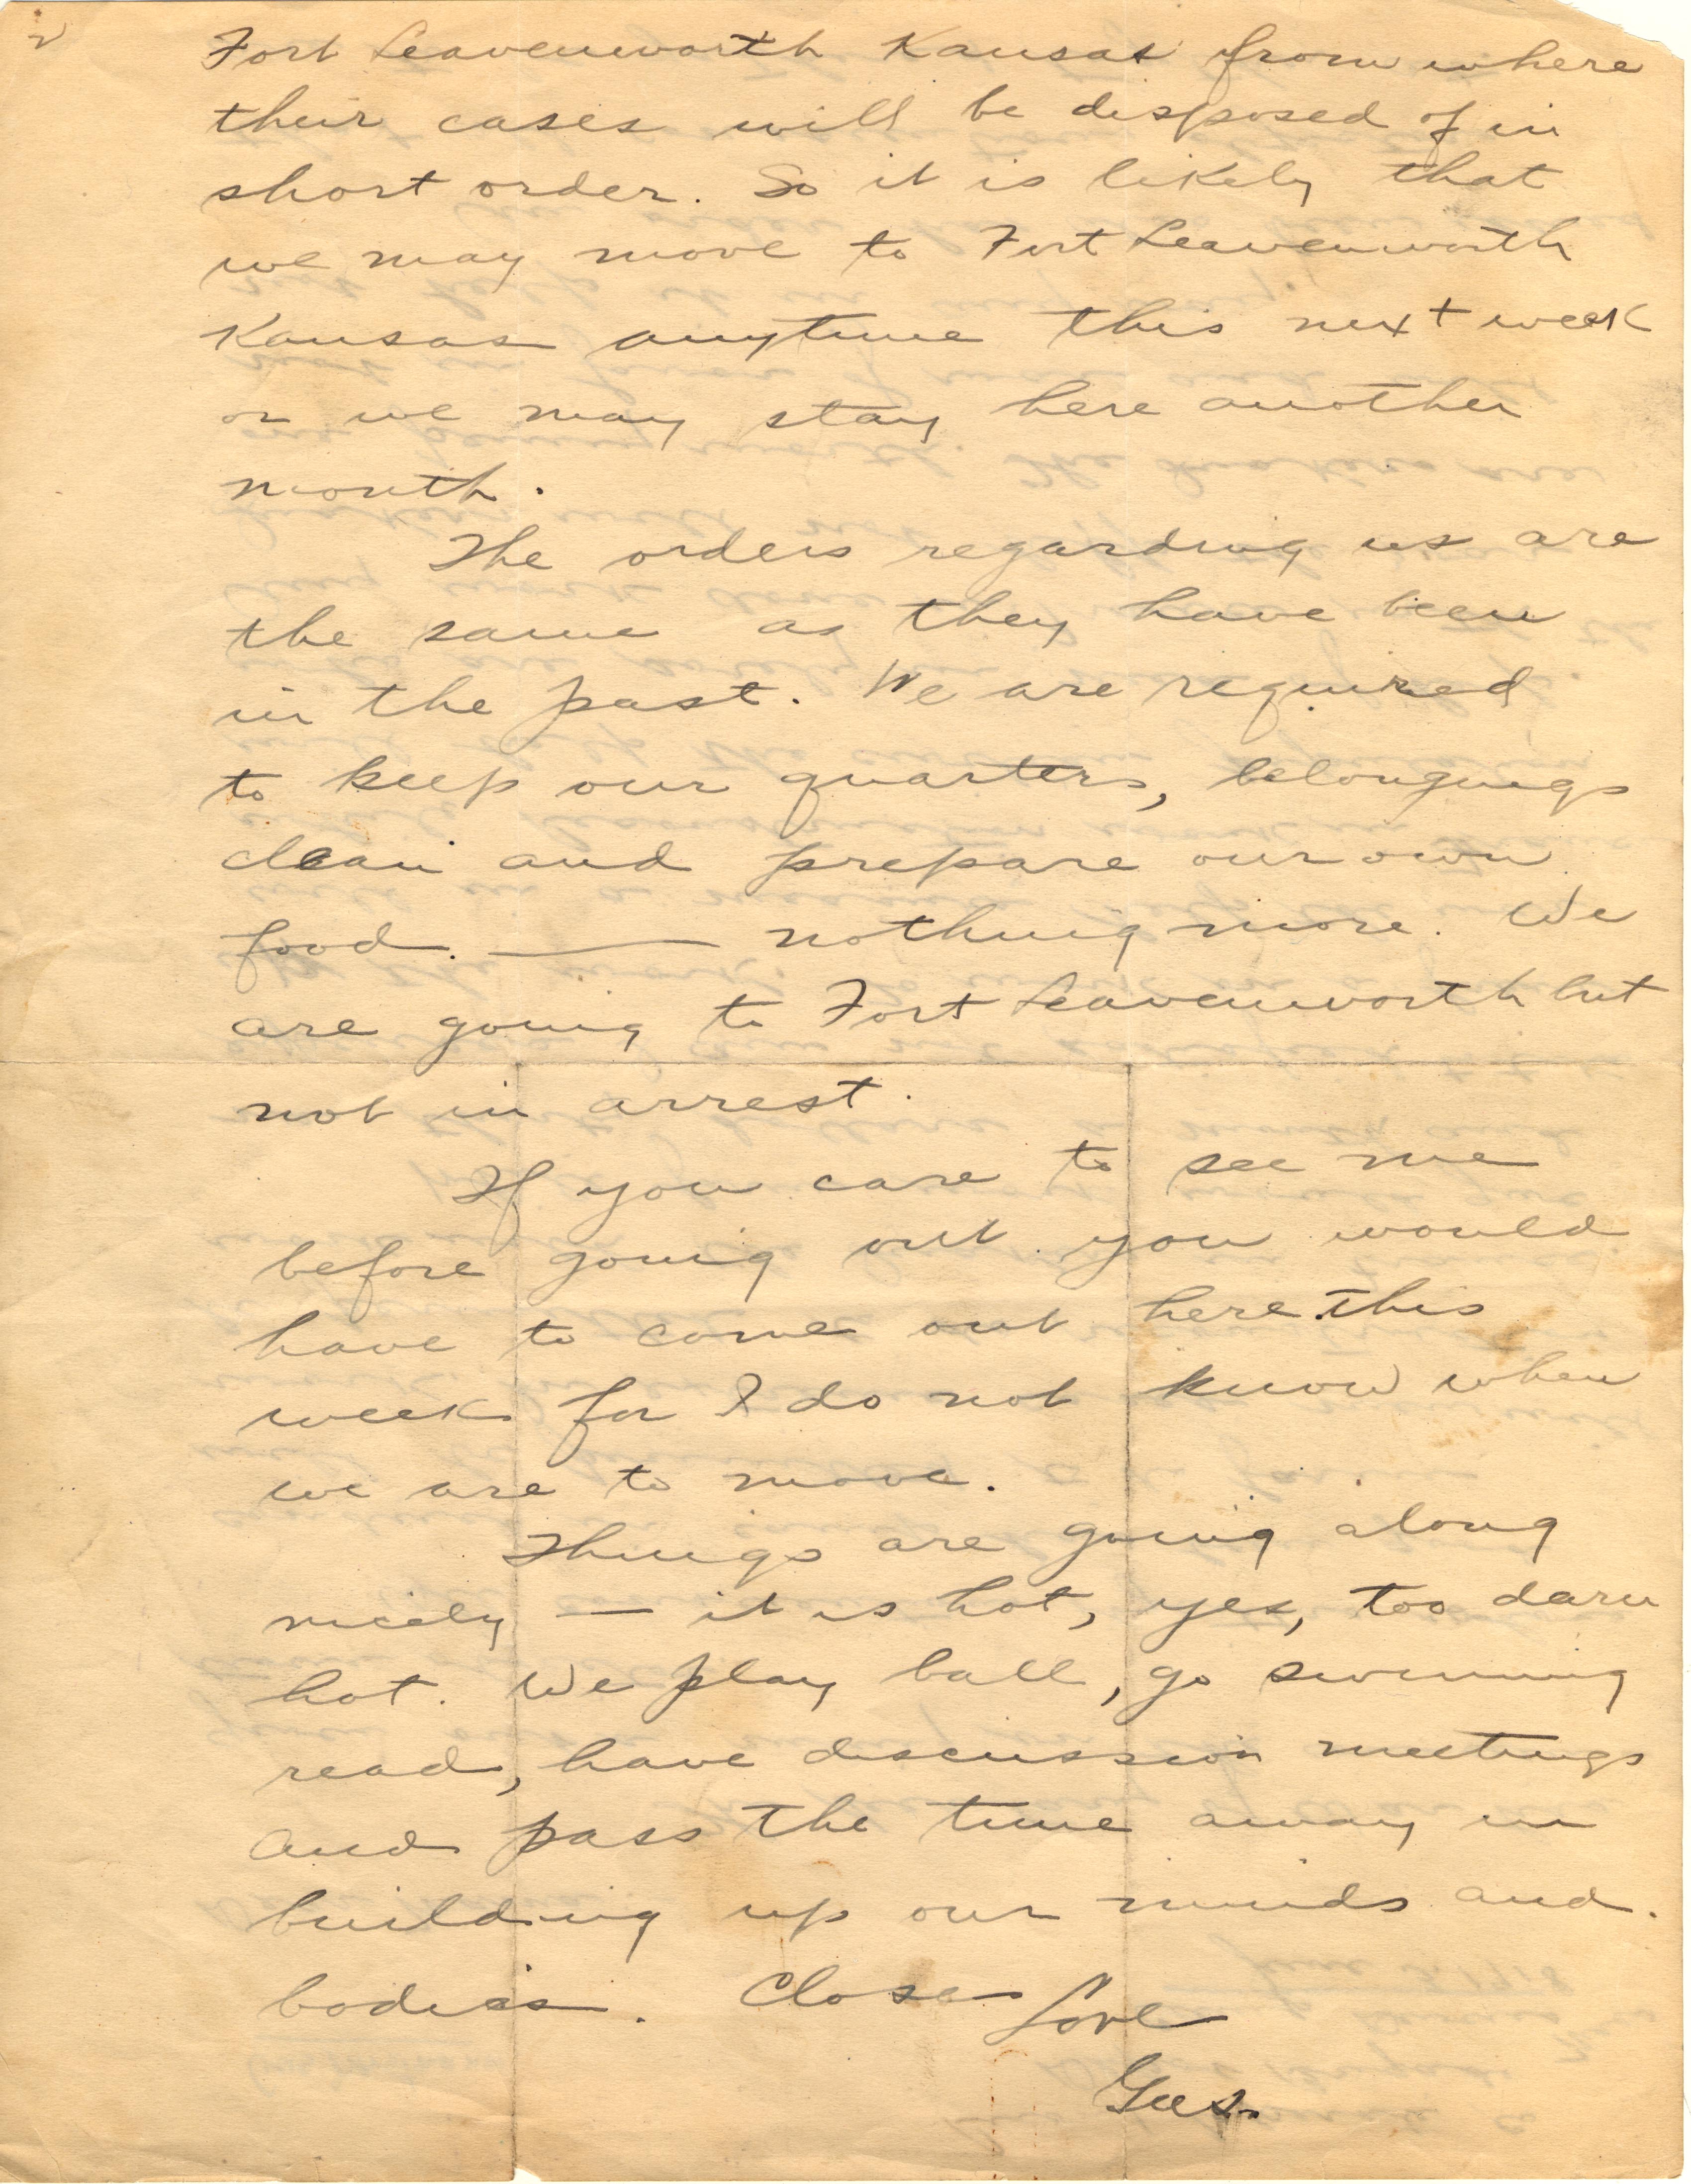 2
Fort Leavenworth Kansas from where
their cases will be disposed of in
short order. So it is likely that
we may move to Fort Leavenworth
Kansas anytime this next week
or we may stay here another
month.
The orders regarding us are
the same as they have been
in the past. We are required
to keep our quarters, belongings
clean and prepare our own
food. — nothing more. We
are going to Fort Leavenworth but
not in arrest.
If you care to see me
before going out you would
have to come out here this
week for I do not know when
we are to move.
Things are going along
nicely — it is hot, yes, too darn
hot. We play ball, go swimming
read, have discussion meetings
and pass the time away in
building up our minds and
bodies. Close
Love
Gus.